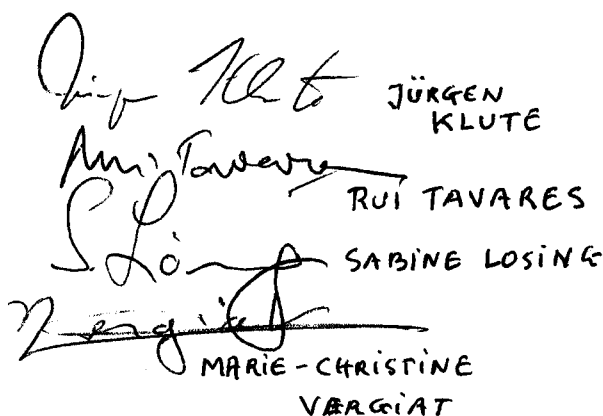 Jürgen Klute JÜRGEN
KLUTE
Rui Tavares
RUI TAVARES
S. Lö SABINE LOSING
Vergiat
MARIE-CHRISTINE
VERGIAT